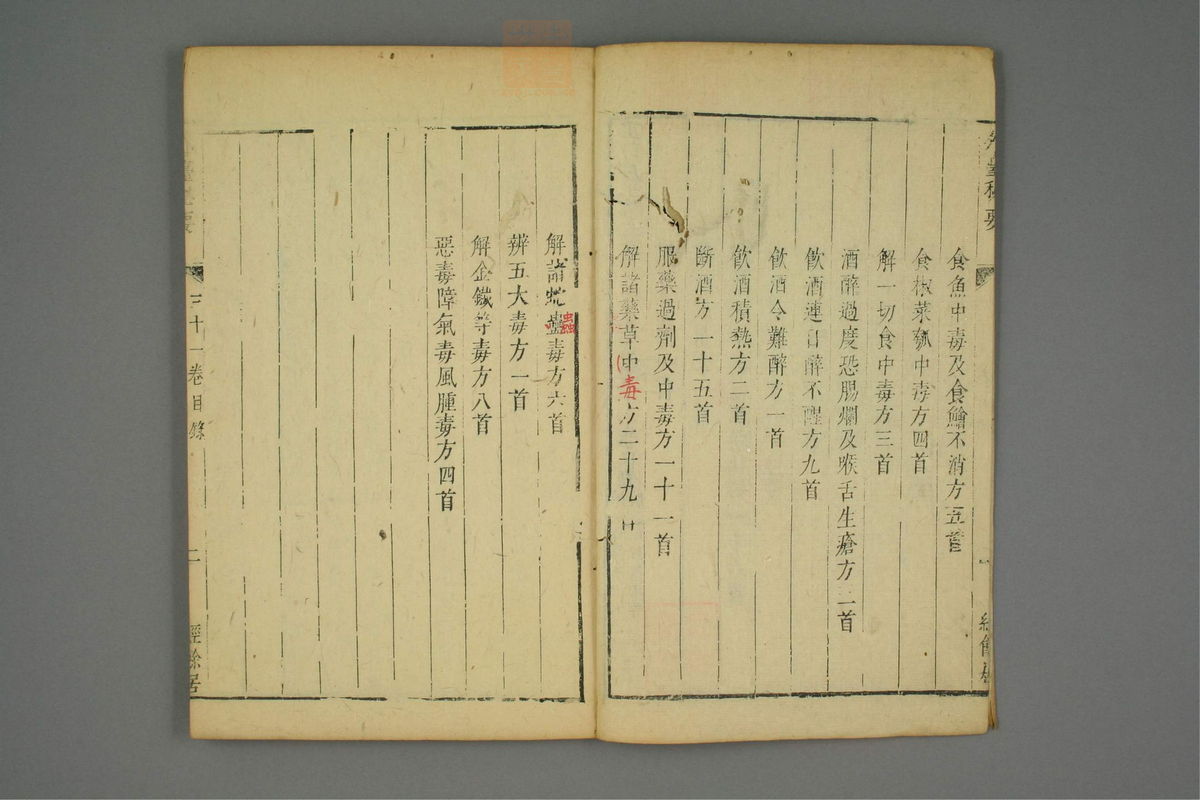 臺秘要
食魚中毒及食鱠不消方五首
食椒菜瓠中毒方四首
解一切食中毒方三首
酒醉過度恐腸爛及喉舌生瘡方二首
飲酒連日醉不醒方九首
飲酒令難醉方一首
飲酒積熱方二首
斷酒方一十五首
服藥過劑及中毒方一十一首
解諸藥草中毒方二十九
解諸蛇蠱毒方六首
蟲
辨五大毒方一首
解金鐵等毒方八首
惡毒障氣毒風腫毒方四首
三十一卷目錄
二
經餘居